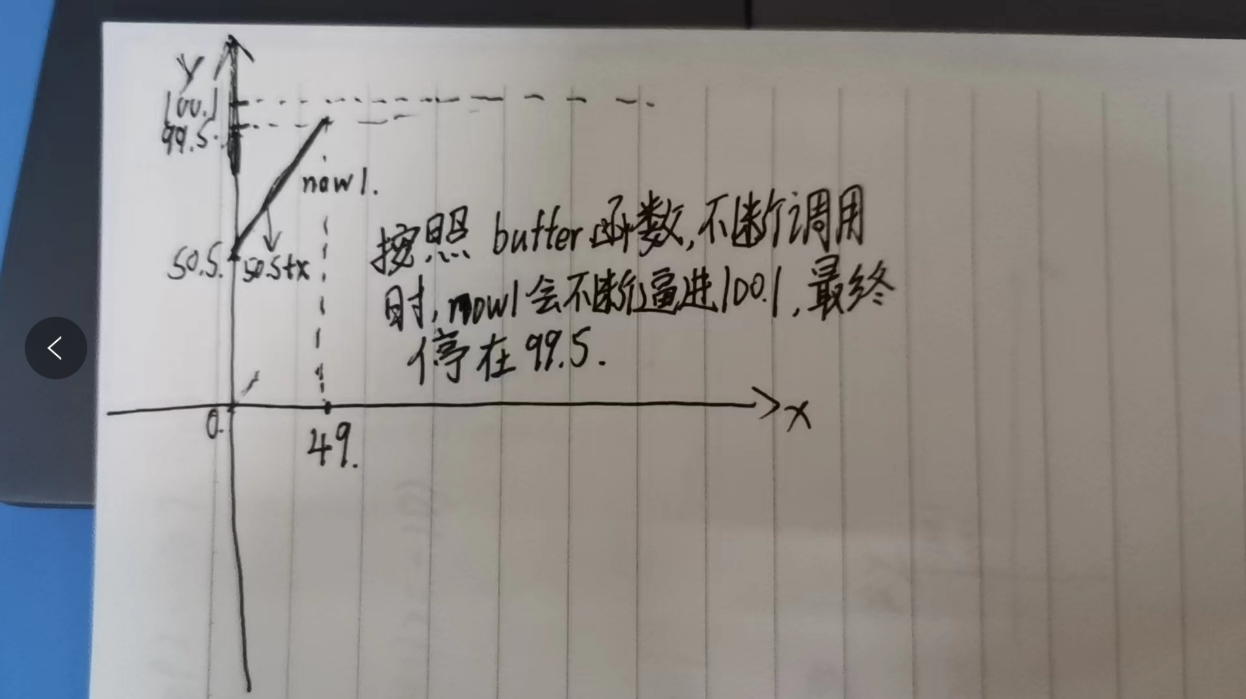 Y
100.1
99.5
now1.
50.5. 50.5+x
按照 butter函数,不断调用
时, now1会不断逼进100.1,最终
停在99.5.
0.
49.
x